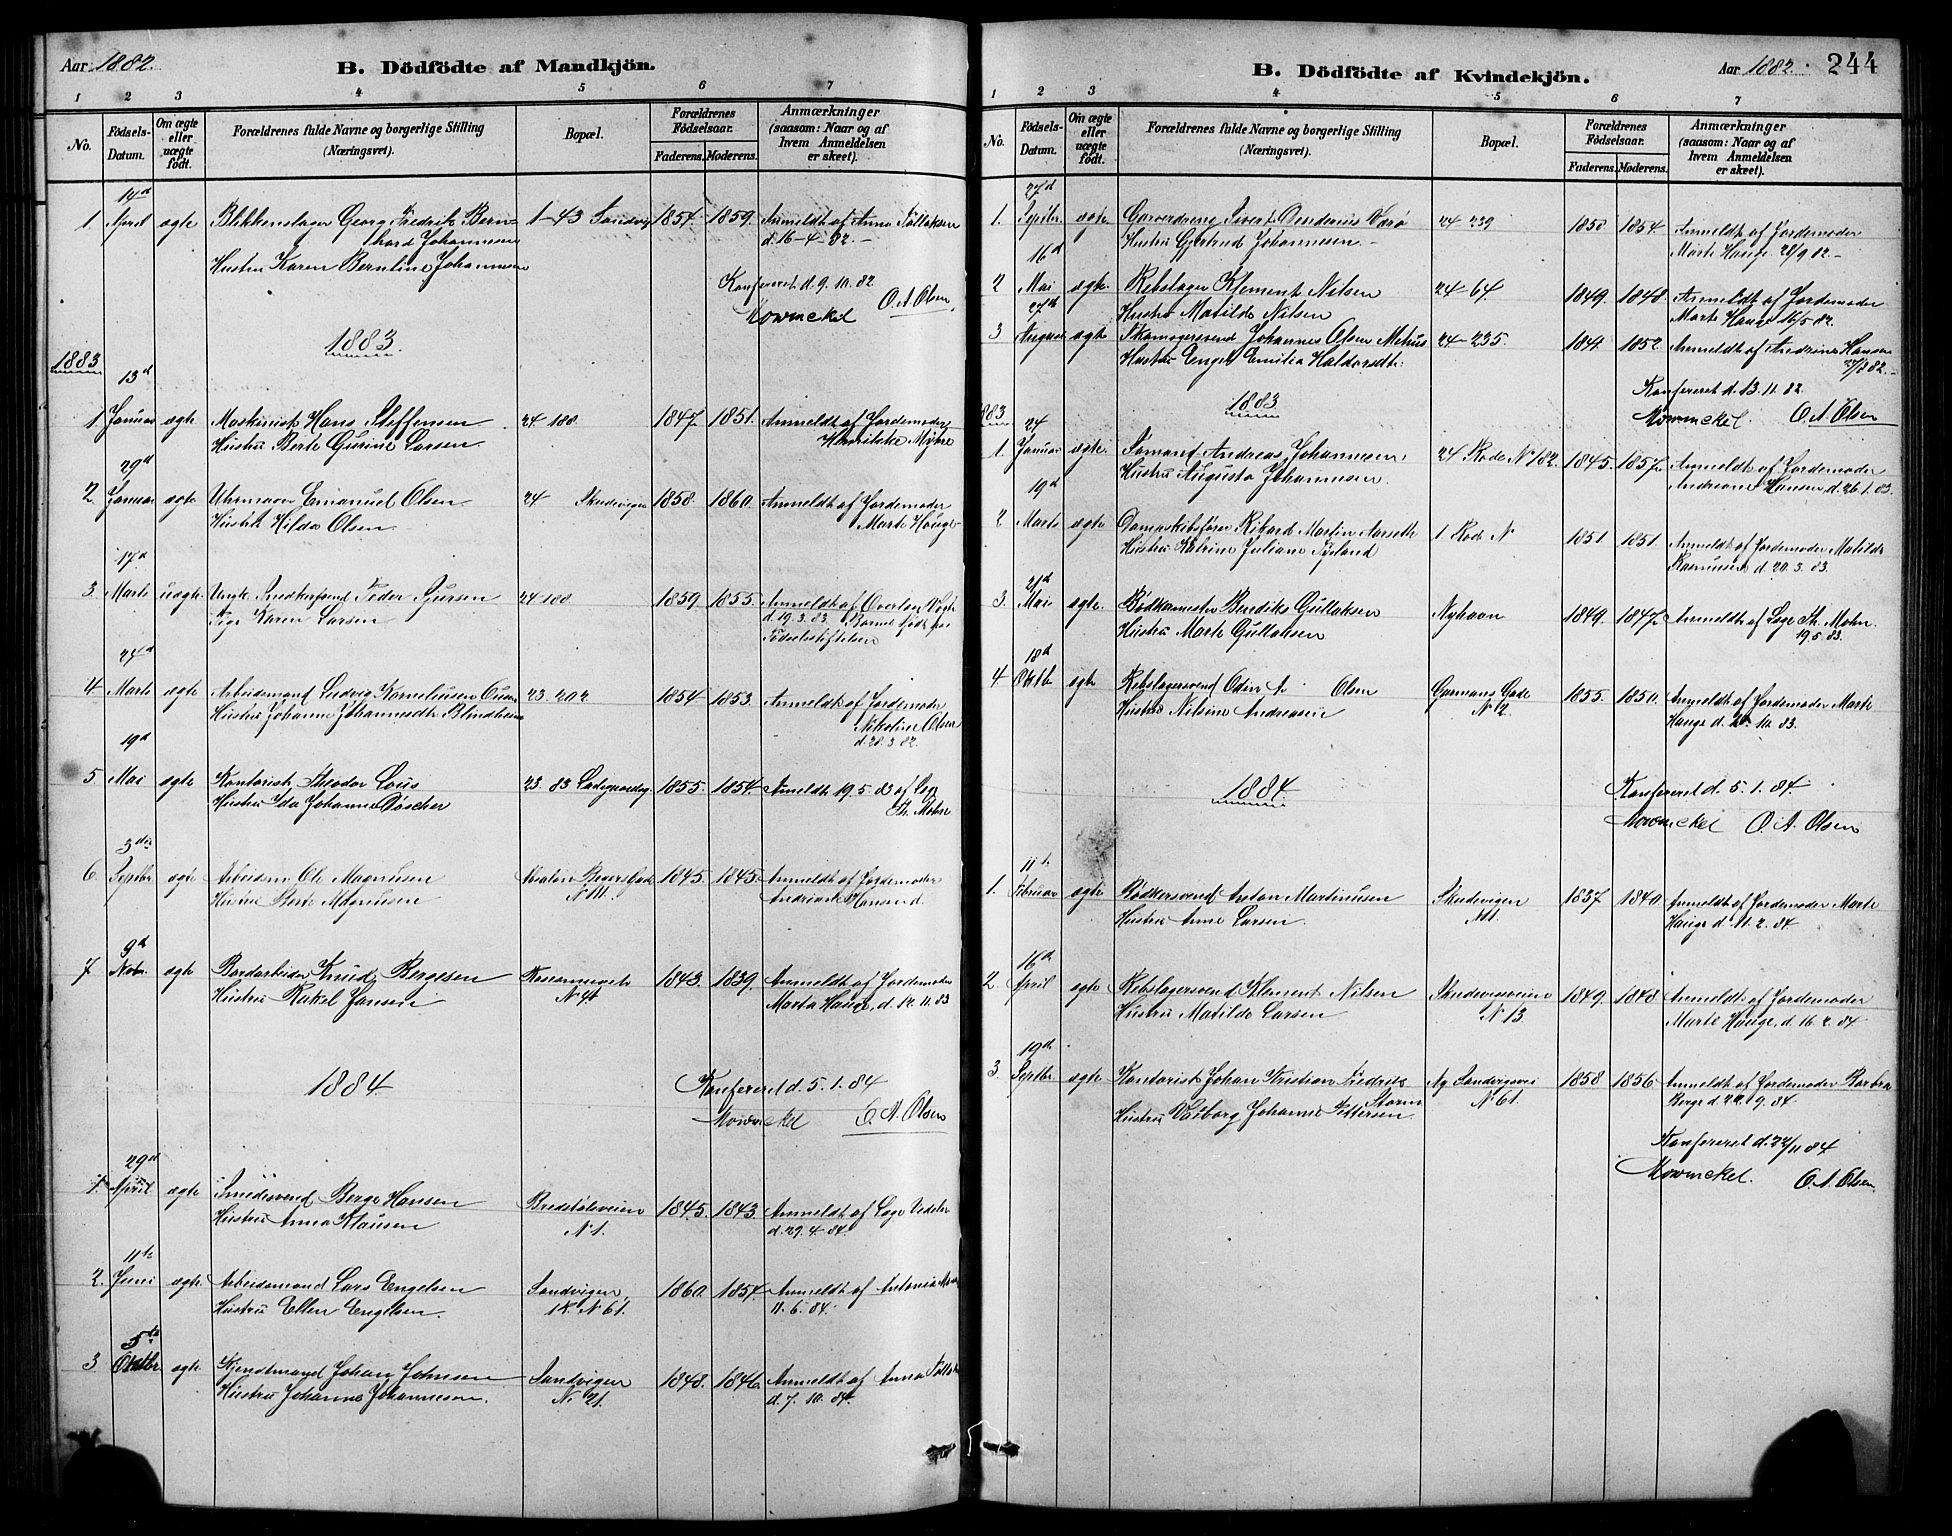 Aar 1882.
B. Dödfödte af Mandkjön.
1 2 3 4 5 6 7
No.
Födsels-Datum.
Om ægte eller uægte födt.
Forældrenes fulde Navne og borgerlige Stilling (Næringsvei).
Bopæl.
Forældrenes Födselsaar.
Faderens. Moderens.
Anmærkninger (saasom: Naar og af hvem Anmeldelsen er skeet).
14d
1. April ægte Blikkenslager Georg Fredrik Bern- 1-43 Sandvig 1854. 1859. Anmeldt af Anna Tollaksen
hard Johannesen d. 16-4-82.
Hustru Karen Berntine Johannesen
Konfereret d. 9.10.82
Mowinckel O. A. Olsen.
1883.
1883
13d
1. Januar ægte Maskinist Hans Steffensen 24 188 1847. 1851. Anmeldt af Jordemoder
Hustru Berte Gurine Larsen. Henrikke Myhre
29d
2. Januar ægte Uhrmager Emanuel Olsen 24 Skudevigen 1858. 1860. Anmeldt af Jordemoder
Hustru Hilda Olsen. Marte Hauge
17d
3. Marts uægte Ungk. Snedkersvend Peder Sjursen 24 188 1859 1855. Anmeldt af Overlæge Vogt
Pige Karen Larsen d. 19.3.83 Barnet født paa
Fødselsstiftelsen
24d
4. Marts ægte Arbeidsmand Ludvig Korneliusen 23. 202 1854 1853. Anmeldt af Jordemoder
Hustru Johanne Johannesdtr Blindheim Nikoline Olsen
d. 28.3.82.
19d
5. Mai ægte Kontorist Theodor Lous 23 83 Ladegaardsg. 1855. 1854. Anmeldt 19.5.83 af Læge
Hustru Ida Johanne Döscher Th. Mohn
3die
6. Septbr ægte Arbeidsm Ole Magnusen 1845. 1845. Anmeldt af Jordemoder
Hustru Berte Magnusen N 11. Andriane Hansen d.
9d
7. Nobr. ægte Bordarbeider Knud Bergesen 1843. 1839. Anmeldt af Jordemoder
Hustru Rakel Jansen Marta Hauge, d. 12.11.83
1884 Konfereret d. 5.1.84
Mowinckel O. A. Olsen
29d
1. April ægte Smedesvend Berge Hansen Bredstølsveien 1845. 1843. Anmeldt af Læge Vedeler
Hustru Anna Klausen N 1. d. 29.4.84.
11te
2. Juni ægte Arbeidsmand Lars Engelsen Sandvigen 1860. 1854. Anmeldt af Antonia
Hustru Ellen Engelsen. 1R. N 61. 11.6.84.
5te
3 Oktbr ægte Johan Johnsen Sandvigen 1848. 1846. Anmeldt af Anna Tollaksen
Hustru Johanna Johannesen. N. 21. d. 7.10.84.
B. Dödfödte af Kvindekjön.
Aar 1882. 244
1 2 3 4 5 6 7
No.
Födsels-Datum.
Om ægte eller uægte födt.
Forældrenes fulde Navne og borgerlige Stilling (Næringsvei).
Bopæl.
Forældrenes Födselsaar.
Faderens. Moderens.
Anmærkninger (saasom: Naar og af hvem Anmeldelsen er skeet).
27d
1. Septbr. ægte Garverdreng Sivert 24-239 1850. 1854. Anmeldt af Jordemoder
Hustru Gjertrud Johannesen Marte Hauge 28/9 82.
16d
2 Mai ægte Rebslager Klement Nilsen 24-64. 1849. 1848. Anmeldt af Jordemoder
Hustru Matilde Nilsen Marte Hauge 16/5 82.
27de
3 August ægte Skomagersvend Johannes Olsen Mehus 24-235. 1844. 1852. Anmeldt af Andrine Hansen
Hustru Engel Emilia Haldorsdtr. 27/8 82.
Konfereret d. 13.11.82.
Mowinckel. O. A. Olsen
1883
1883
24
1. Januar ægte Sømand Andreas Johannesen, 24 Rode No 182. 1845. 1857. Anmeldt af Jordemoder
Hustru Augusta Johannesen. Andriane Hansen d. 26.1.83.
19d
2 Marts ægte Dampskibsfører Rikard Martin Aarseth 1 Rode N 1851 1851. Anmeldt af Jordemoder Matilde
Hustru Katrine Juliane Rasmussen d. 20.3.83.
21d
3. Mai ægte. Bødkermester Bendiks Gullaksen Nyhavn 1849. 1847. Anmeldt af Læge Th. Mohn.
Hustru Marte Gullaksen 19.5.83.
18d
4 Oktb. ægte Rebslagersvend Odin A Olsen Gørmans Gade 1855. 1850. Anmeldt af Jordemoder Marte
Hustru Nilsine Andreasen N 2. Hauge d. 10.83.
1884 Konfereret d. 5.1.84.
Mowinckel O. A. Olsen
11te
1. Februar ægte Bødkersvend Anton Martinusen Skudevigen 1837 1840. Anmeldt af Jordemoder Marte
Hustru Anne Larsen. N1. Hauge d. 11.2.84
16d
2. April ægte Rebslagersvend Klement Nilsen Skudevigsveien 1849. 1848 Anmeldt af Jordemoder
Hustru Matilde Larsen N 13. Marte Hauge, d. 16.2.84
19de
3. Septbr. ægte Kontorist Johan Kristian Fredrik Ny Sandvigsvei 1858 1856 Anmeldt af Jordemoder Barbra
Storm N 61. Berge d. 9.84.
Hustru Valborg Johanne Pettersen.
Konfereret d. 22/11 84
Mowinckel. O. A. Olsen.